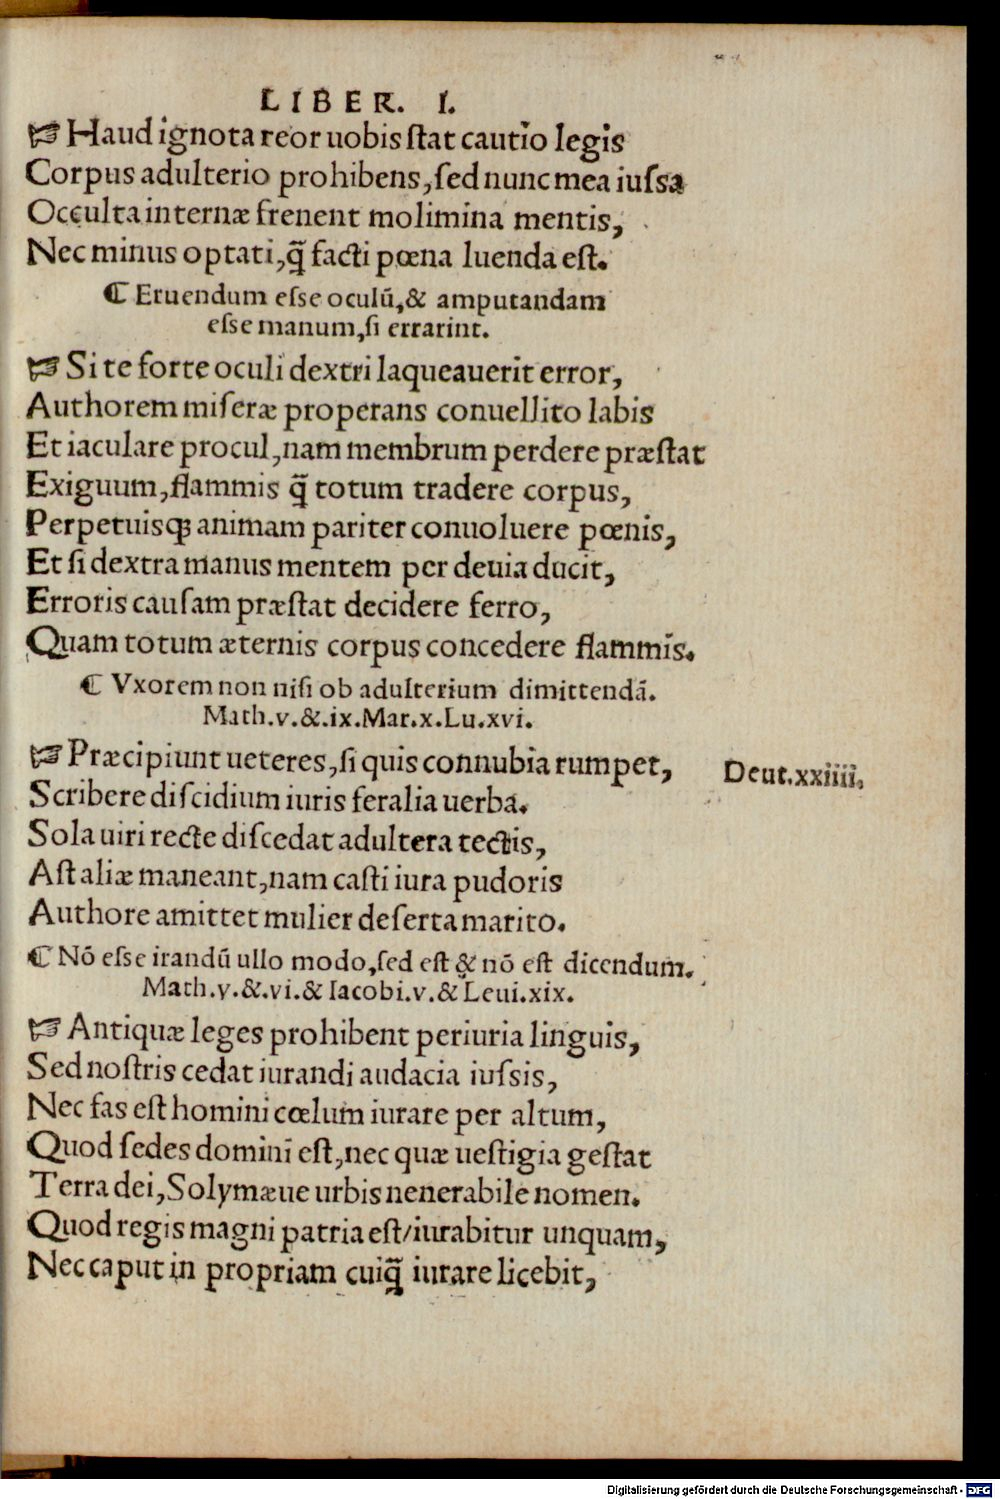 LIBER. I.
☞ Haud ignota reor uobis ſtat cautio legis
Corpus adulterio prohibens, ſed nunc mea iuſsa
Occulta internæ frenent molimina mentis,
Nec minus optati, q̃ facti pœna luenda eſt.
¶ Eruendum eſse oculũ, & amputandam
eſse manum, ſi errarint.
☞ Si te forte oculi dextri laqueauerit error,
Authorem miſeræ properans conuellito labis
Et iaculare procul, nam membrum perdere præſtat
Exiguum, flammis q̃ totum tradere corpus,
Perpetuisꝗ animam pariter conuoluere pœnis,
Et ſi dextra manus mentem per deuia ducit,
Erroris cauſam præſtat decidere ferro,
Quam totum æternis corpus concedere flammis.
¶ Vxorem non niſi ob adulterium dimittendã.
Math.v.&.ix.Mar.x.Lu.xvi.
☞ Præcipiunt ueteres, ſi quis connubia rumpet,
Deut.xxiiii.
Scribere diſcidium iuris feralia uerba.
Sola uiri recte diſcedat adultera tectis,
Aſt aliæ maneant, nam caſti iura pudoris
Authore amittet mulier deſerta marito.
¶ Nõ eſse irandũ ullo modo, ſed eſt & nõ eſt dicendum.
Math.v.&.vi.& Iacobi.v.& Leui.xix.
☞ Antiquæ leges prohibent periuria linguis,
Sed noſtris cedat iurandi audacia iuſsis,
Nec fas eſt homini cœlum iurare per altum,
Quod ſedes domini eſt, nec quæ ueſtigia geſtat
Terra dei, Solymæue urbis nenerabile nomen.
Quod regis magni patria eſt/iurabitur unquam,
Nec caput in propriam cuiq̃ iurare licebit,
Digitalisierung gefördert durch die Deutsche Forschungsgemeinschaft - DFG